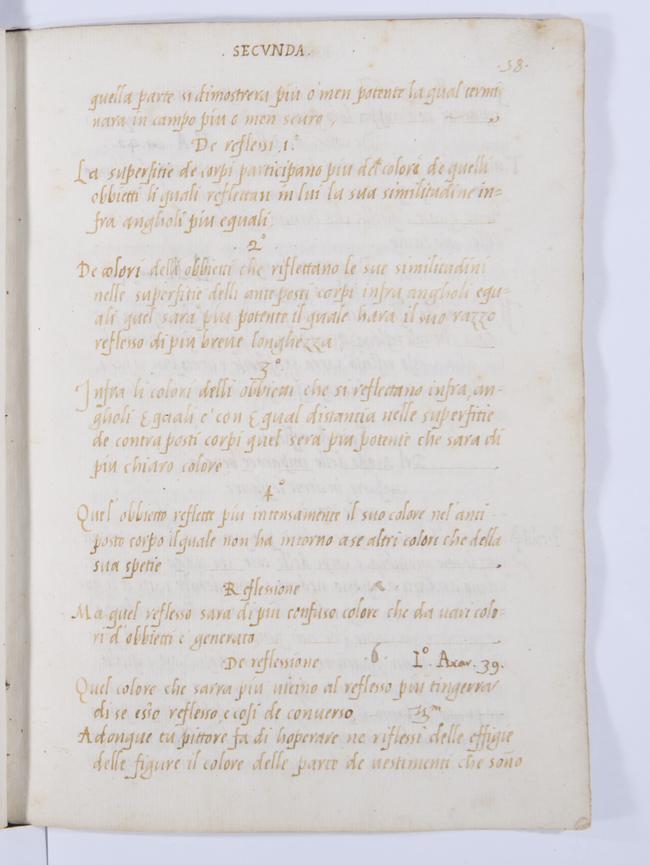 . SECVNDA .
.38.
quella parte si dimostrera piu o men potente la qual termi
nara in campo piu o men scuro ,
De reflessi 1.º
La superfitie de corpi participano piu del colore de quelli
obbietti li quali reflettan in lui la sua similitudine in=
fra anglioli piu equali
. 2.º
De colori delli obbietti che riflettano le sue similitudini
nelle superfitie delli anteposti corpi infra anglioli equ=
ali quel sara piu potente il quale hara il suo razzo
reflesso di piu breue longhezza
3.º
Infra li colori delli obbietti che si reflettano infra, an-
glioli Equali e con Equal distantia nelle superfitie
de contraposti corpi quel sera piu potente che sara di
piu chiaro colore
4.º
Quel obbietto reflette piu intensamente il suo colore nel anti
posto corpo il quale non ha intorno a se altri colori che della
sua spetie
Reflessione
Ma quel reflesso sara di piu confuso colore che da uari colo=
ri d obbietti e generato
De reflessione 6. Iº. Axar. 39.
Quel colore che sarra piu uicino al reflesso piu tingerra
di se esso reflesso, e cosi de conuerso
Adonque tu pittore fa di hoperare ne riflessi delle effigue
delle figure il colore delle parte de uestimenti che sono